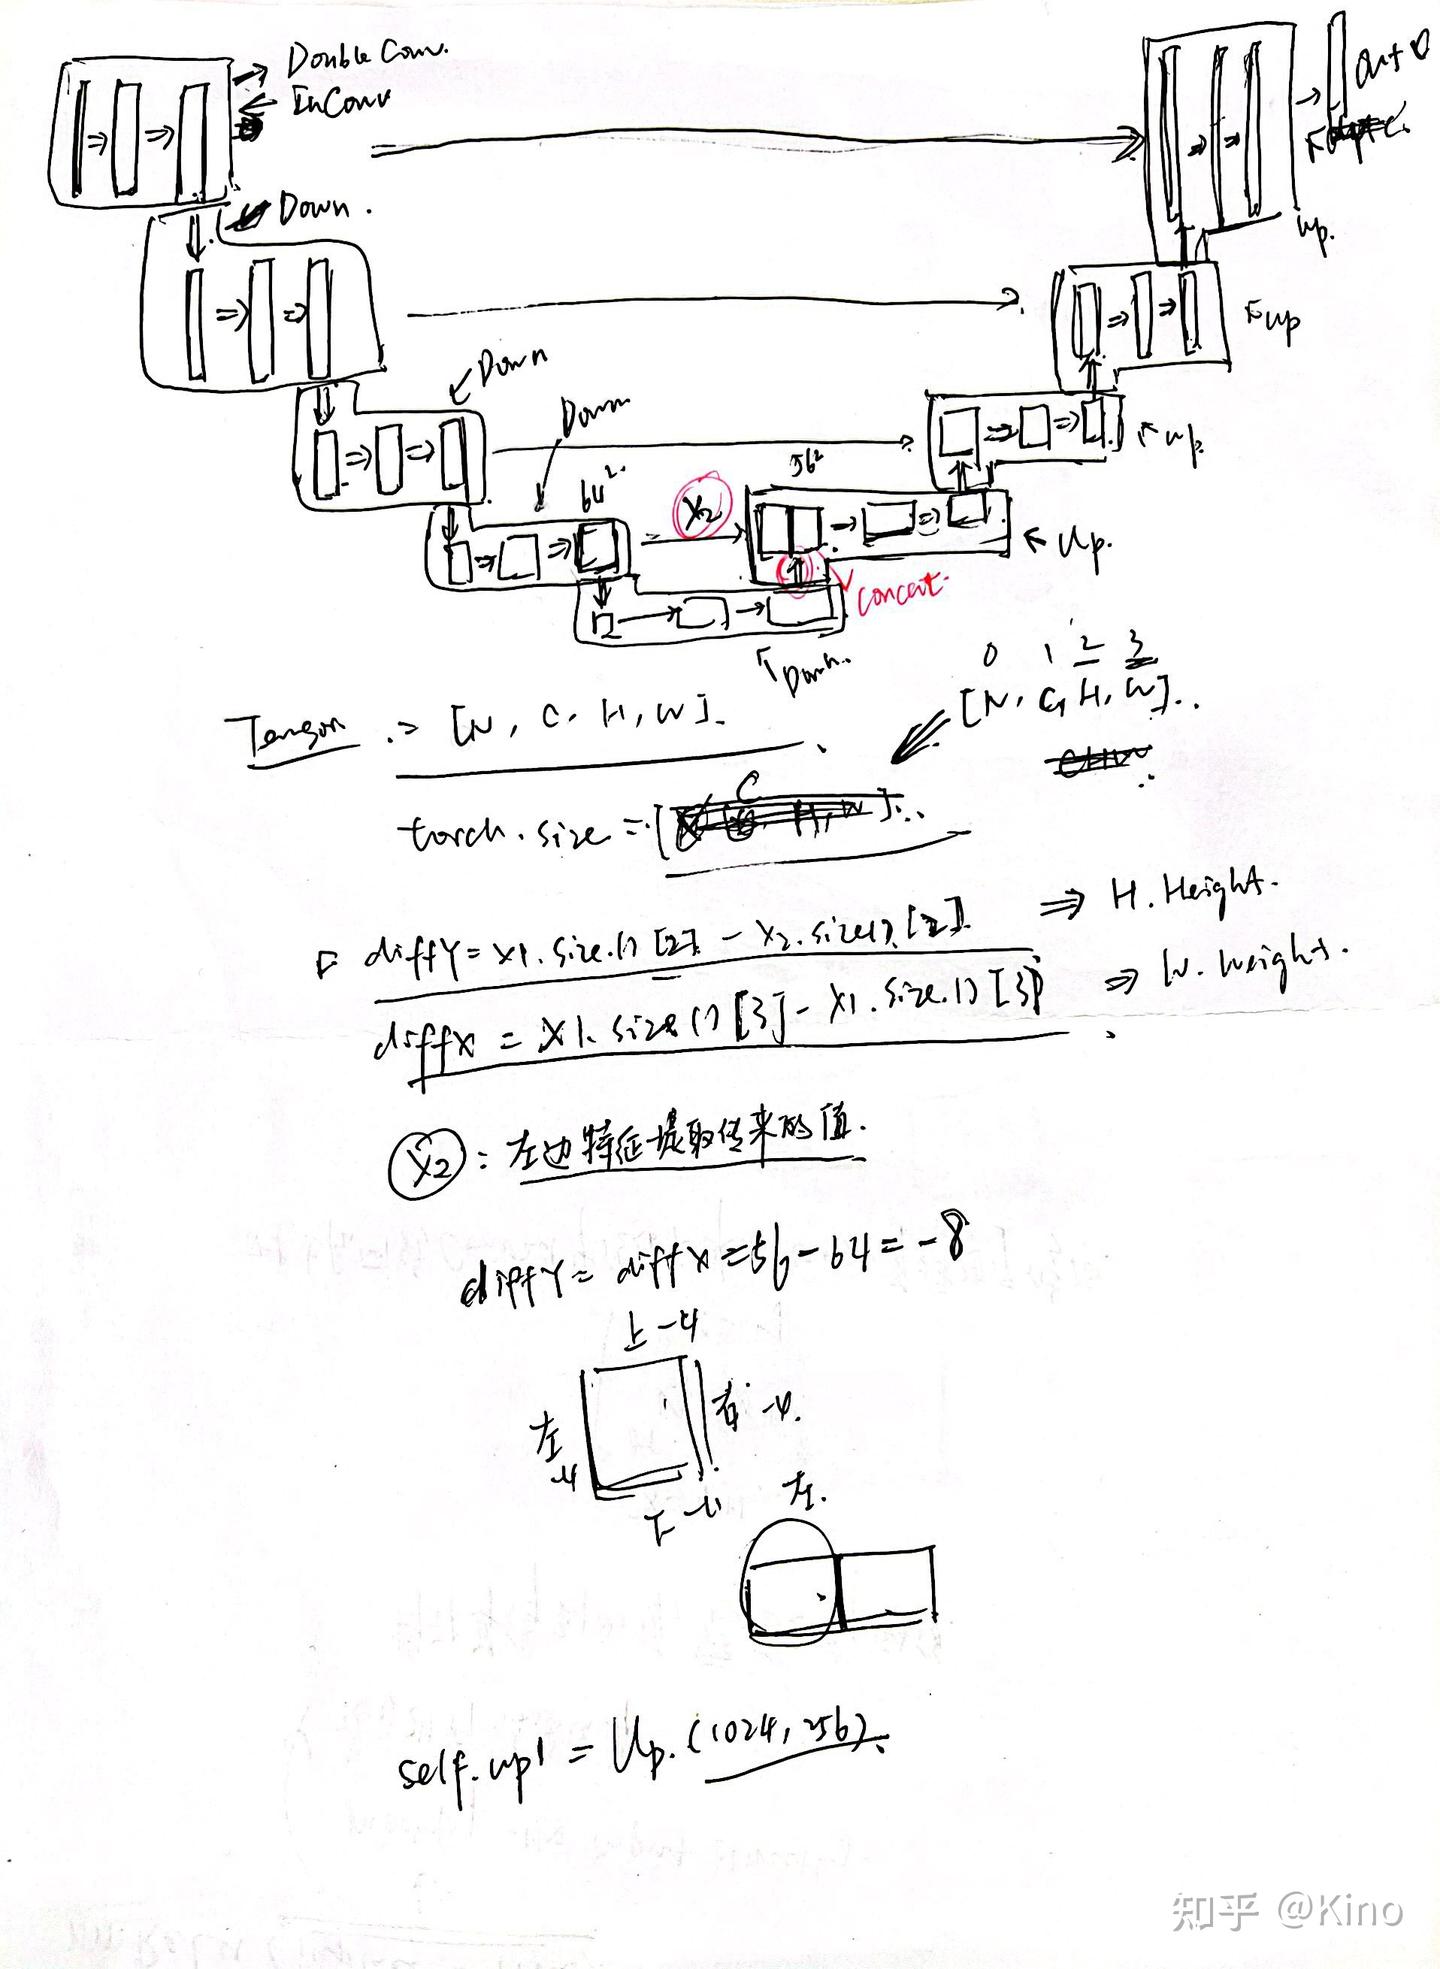 Double Conv.
InConv
Out
Down.
up.
up
Down
Down
64².
56²
X2
up.
Up.
Concat.
Down.
0 1 2 3
Tensor => [N, C, H, W].
[N, C, H, W]..
C
torch.size = [ H, W]..
diffY = X1.size.() [2] - X2.size() [2]. => H. Height.
diffX = X1.size() [3] - X1.size.() [3] => W. Weight.
X2 : 左边特征提取传来的值.
diffY = diffX = 56 - 64 = -8
上 -4
左 -4
右 -4.
下 -4
左.
self.up1 = Up.(1024, 256).
知乎 @Kino